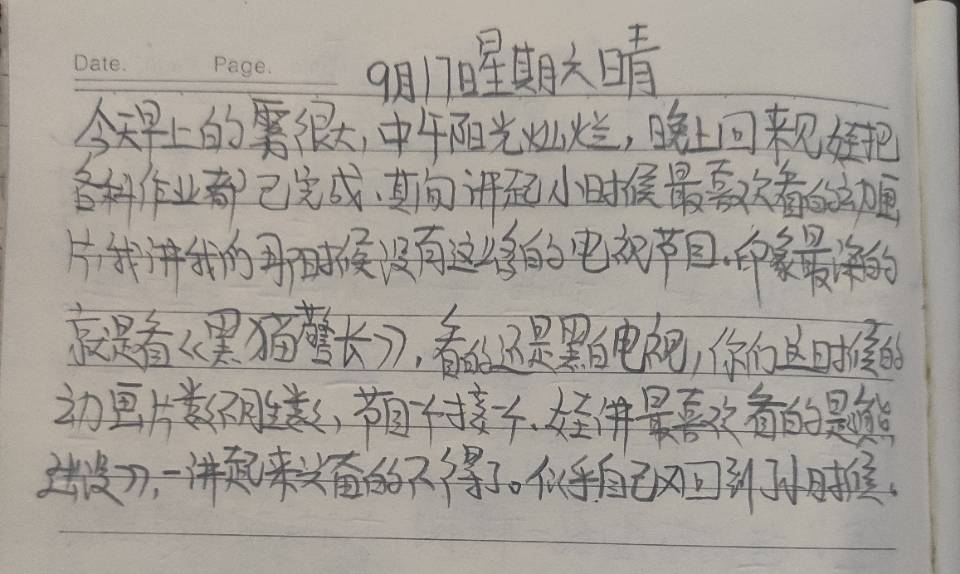 Date. Page.
9月17日星期六晴
今天早上的雾很大，中午阳光灿烂，晚上回来见娃把
各科作业都已完成、其间讲起小时候最喜欢看的动画
片，我讲我们那时候没有这么多的电视节目。印象最深的
就是看《黑猫警长》，看的还是黑白电视，你们这时候的
动画片数不胜数，节目一个接一个、娃讲最喜欢看的是熊
建设》，一讲起来兴奋的不得了。似乎自己又回到了小时候。